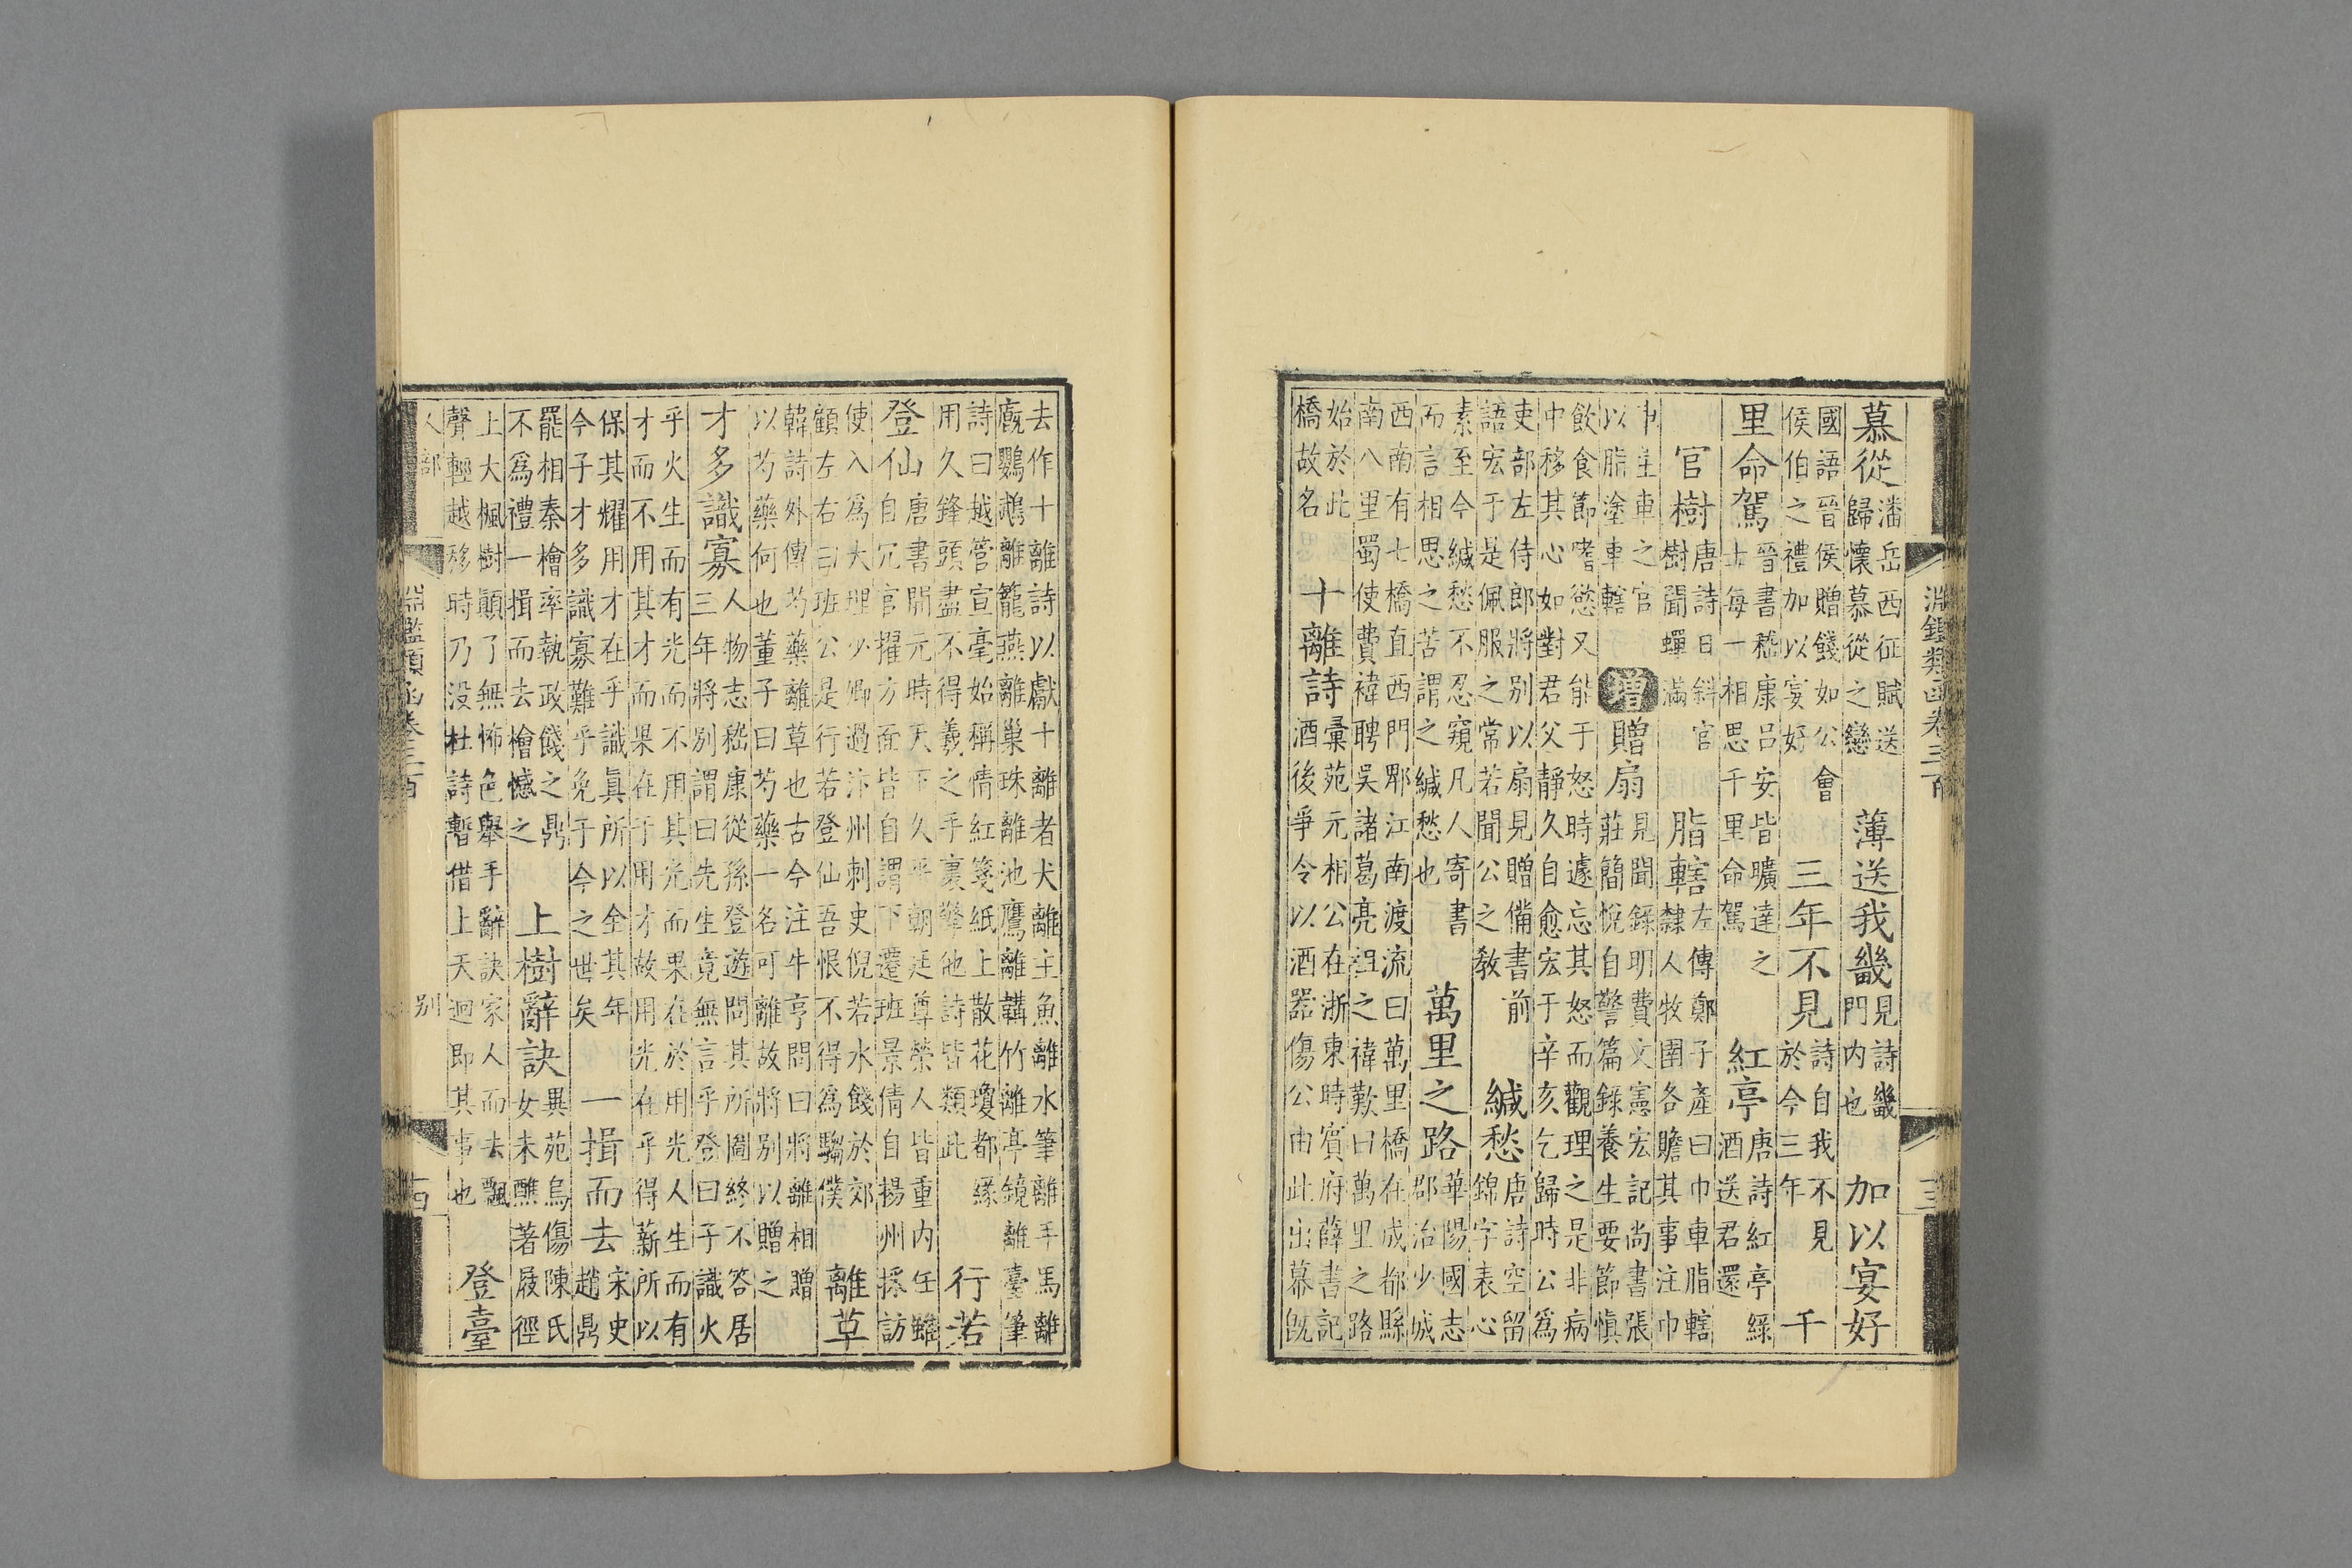 淵鑑類函卷三百
慕從潘岳西征賦送歸懷慕從之戀　薄送我畿見詩畿門内也　加以宴好
國語晉侯贈餞如公會侯伯之禮加以宴好　三年不見詩自我不見於今三年　千
里命駕晉書嵇康吕安皆曠達之士每一相思千里命駕　紅亭唐詩紅亭緑酒送君還
官樹唐詩日斜官樹樹聞蟬滿　脂轄左傳鄭子產曰巾車脂轄隸人牧圉各贍其事注巾
車主車之官以脂塗車轄　增　贈扇見聞錄明費文憲宏記尚書張莊簡悅自警篇錄養生要節慎
飲食節嗜慾又能于怒時遽忘其怒而觀理之是非病中移其心如對君父靜久自愈宏于辛亥乞歸時公爲
吏部左侍郎將别以扇見贈備書前語宏于是佩服之常若聞公之教　緘愁唐詩空留錦字表心
素至今緘愁不忍窺凡人寄書而言相思之苦謂之緘愁也　萬里之路華陽國志郡治少城
西南有七橋直西門郫江南渡流曰萬里橋在成都縣南八里蜀使費禕聘吳諸葛亮祖之禕歎曰萬里之路
始於此橋故名　十離詩彙苑元相公在浙東時賓府薛書記酒後爭令以酒器傷公由此出幕旣
去作十離詩以獻十離者犬離主魚離水筆離手馬離廐鸚鵡離籠燕離巢珠離池鷹離韝竹離亭鏡離臺筆
詩曰越管宣毫始稱情紅箋紙上散花瓊都緣用久鋒頭盡不得羲之手裏擎他詩皆類此　行若
登仙唐書開元時天下久平朝廷尊榮人皆重内任雖自冗官擢方面皆自謂下遷班景倩自揚州採訪
使入爲大理少卿過汴州刺史倪若水餞於郊顧左右曰班公是行若登仙吾恨不得爲騶僕　離草
韓詩外傳芍藥離草也古今注牛亨問曰將離相贈以芍藥何也董子曰芍藥一名可離故將别以贈之
才多識寡人物志嵇康從孫登遊問其所圖終不答居三年將别謂曰先生竟無言乎登曰子識火
乎火生而有光而不用其光而果在於用光人生而有才而不用其才而果在于用才故用光在乎得薪所以
保其耀用才在乎識真所以全其年今子才多識寡難乎免于今之世矣　一揖而去宋史趙鼎
罷相秦檜率執政餞之鼎不爲禮一揖而去檜憾之　上樹辭訣異苑烏傷陳氏女未醮著屐徑
上大楓樹顛了無怖色舉手辭訣家人而去飄聲輕越移時乃没杜詩暫借上天迴即其事也　登臺
人部　淵鑑類函卷三百　别